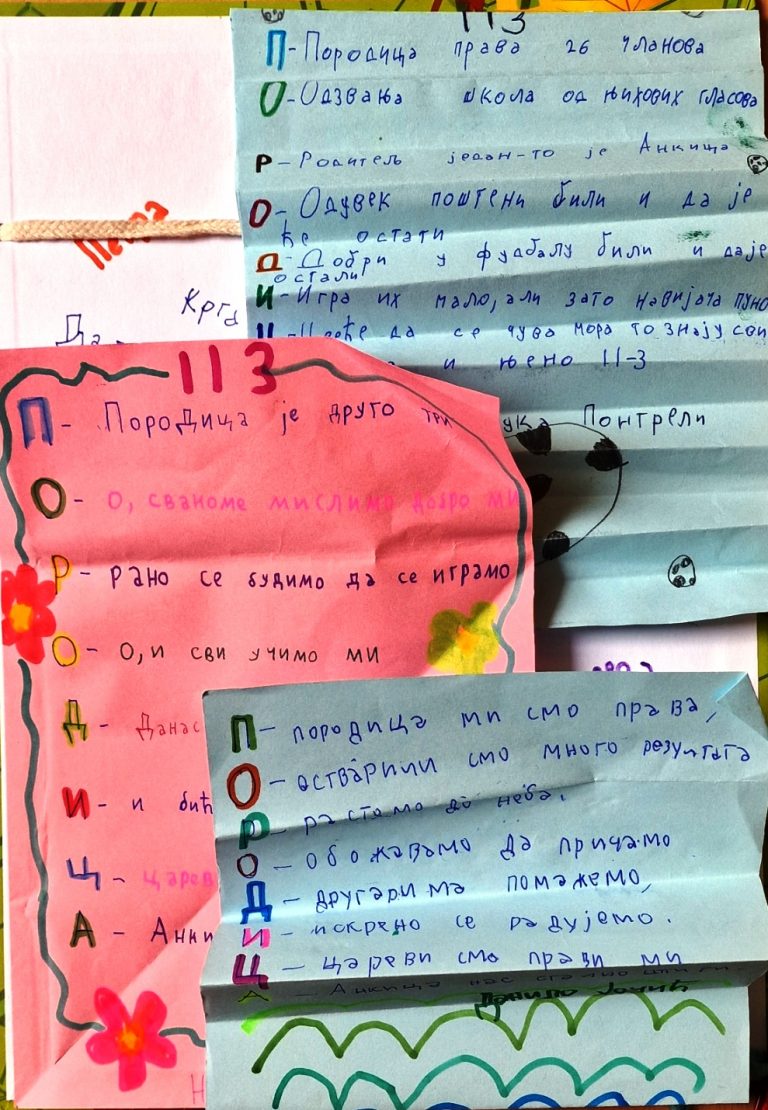 113
П-Породица права 26 чланова
О-Одзвања школа од њихових гласова
Р-Родитељ једон-то је Анкица
О-Одувек поштени били и да је
ће остати
Д-Добри у фудбалу били и даје
остали
И-Игра их мало, али зато навијача пуно
да се чува мора то знају сви
и њено 11-3
Понтрели
Петра
Крга
113
П- Породица је друго
О- о, сваноме мислимо добро ми
Р- рано се будимо да се играмо
О- о, и сви учимо ми
Д- Данас
И- и бић
Ц- царев
А- Анки
П- породица ми смо права,
О-остварили смо много резултата
Р- растамо до неба.
О- обожавамо да причамо
Д- другарима помажемо,
И- искрено се радујемо.
Ц- цареви смо прави ми
А- Анкица нас